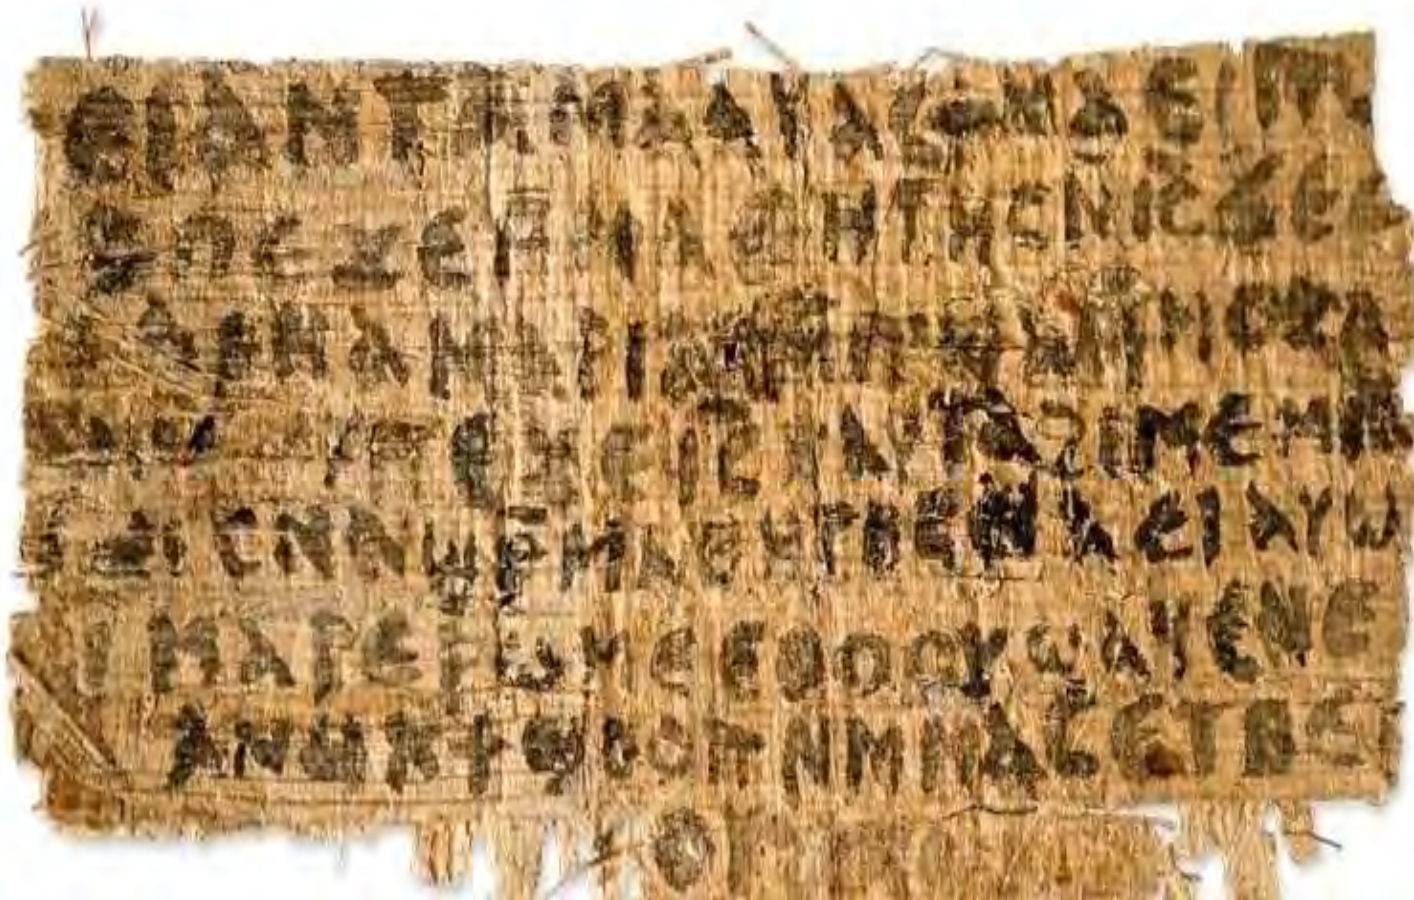 ⲉⲓ ⲁⲛ ⲧⲁⲙⲁⲁⲩ ⲁⲥϯ ⲛⲁⲉⲓ ⲡⲱ
ⲥ ⲡⲉϫⲉ ⲙ̄ⲙⲁⲑⲏⲧⲏⲥ ⲛ̄ⲓ̅ⲥ̅ ϫⲉ
ⲁⲣⲛⲁ ⲙⲁⲣⲓⲁⲙ ⲙ̄ⲡϣⲁ ⲙ̄ⲙⲟⲥ
ⲡⲉϫⲉ ⲓ̅ⲥ̅ ⲛⲁⲩ ⲧⲁϩⲓⲙⲉ ⲙⲛ̄
ⲥⲛⲁϣⲣ̄ⲙⲁⲑⲏⲧⲏⲥ ⲛⲁⲉⲓ ⲁⲩⲱ
ⲙⲁⲣⲉⲣⲱⲙⲉ ⲉⲑⲟⲟⲩ ϣⲁϥⲉ ⲛⲉ
ⲁⲛⲟⲕ ϯϣⲟⲟⲡ ⲛⲙ̄ⲙⲁⲥ ⲉⲧⲃⲉ